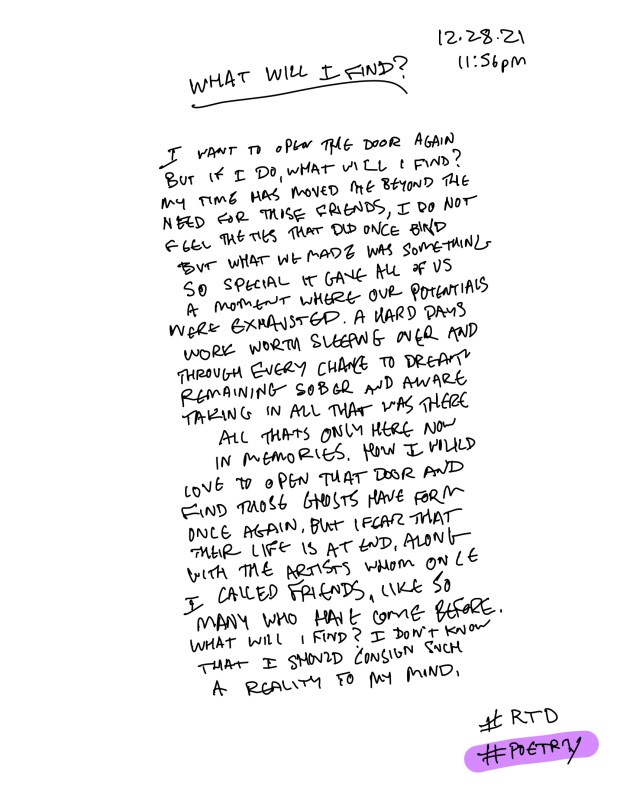 12.28.21
11:56pm
WHAT WILL I FIND?
I WANT TO OPEN THE DOOR AGAIN
BUT IF I DO, WHAT WILL I FIND?
MY TIME HAS MOVED ME BEYOND THE
NEED FOR THOSE FRIENDS, I DO NOT
FEEL THE TIES THAT DID ONCE BIND
BUT WHAT WE MADE WAS SOMETHING
SO SPECIAL IT GAVE ALL OF US
A MOMENT WHERE OUR POTENTIALS
WERE EXHAUSTED. A HARD DAYS
WORK WORTH SLEEPING OVER AND
THROUGH EVERY CHANCE TO DREAM
REMAINING SOBER AND AWARE
TAKING IN ALL THAT WAS THERE
ALL THATS ONLY HERE NOW
IN MEMORIES. HOW I WOULD
LOVE TO OPEN THAT DOOR AND
FIND THOSE GHOSTS HAVE FORM
ONCE AGAIN, BUT I FEAR THAT
THEIR LIFE IS AT END, ALONG
WITH THE ARTISTS WHOM ONCE
I CALLED FRIENDS, LIKE SO
MANY WHO HAVE COME BEFORE.
WHAT WILL I FIND? I DON'T KNOW
THAT I SHOULD CONSIGN SUCH
A REALITY TO MY MIND.
#RTD
#POETRY